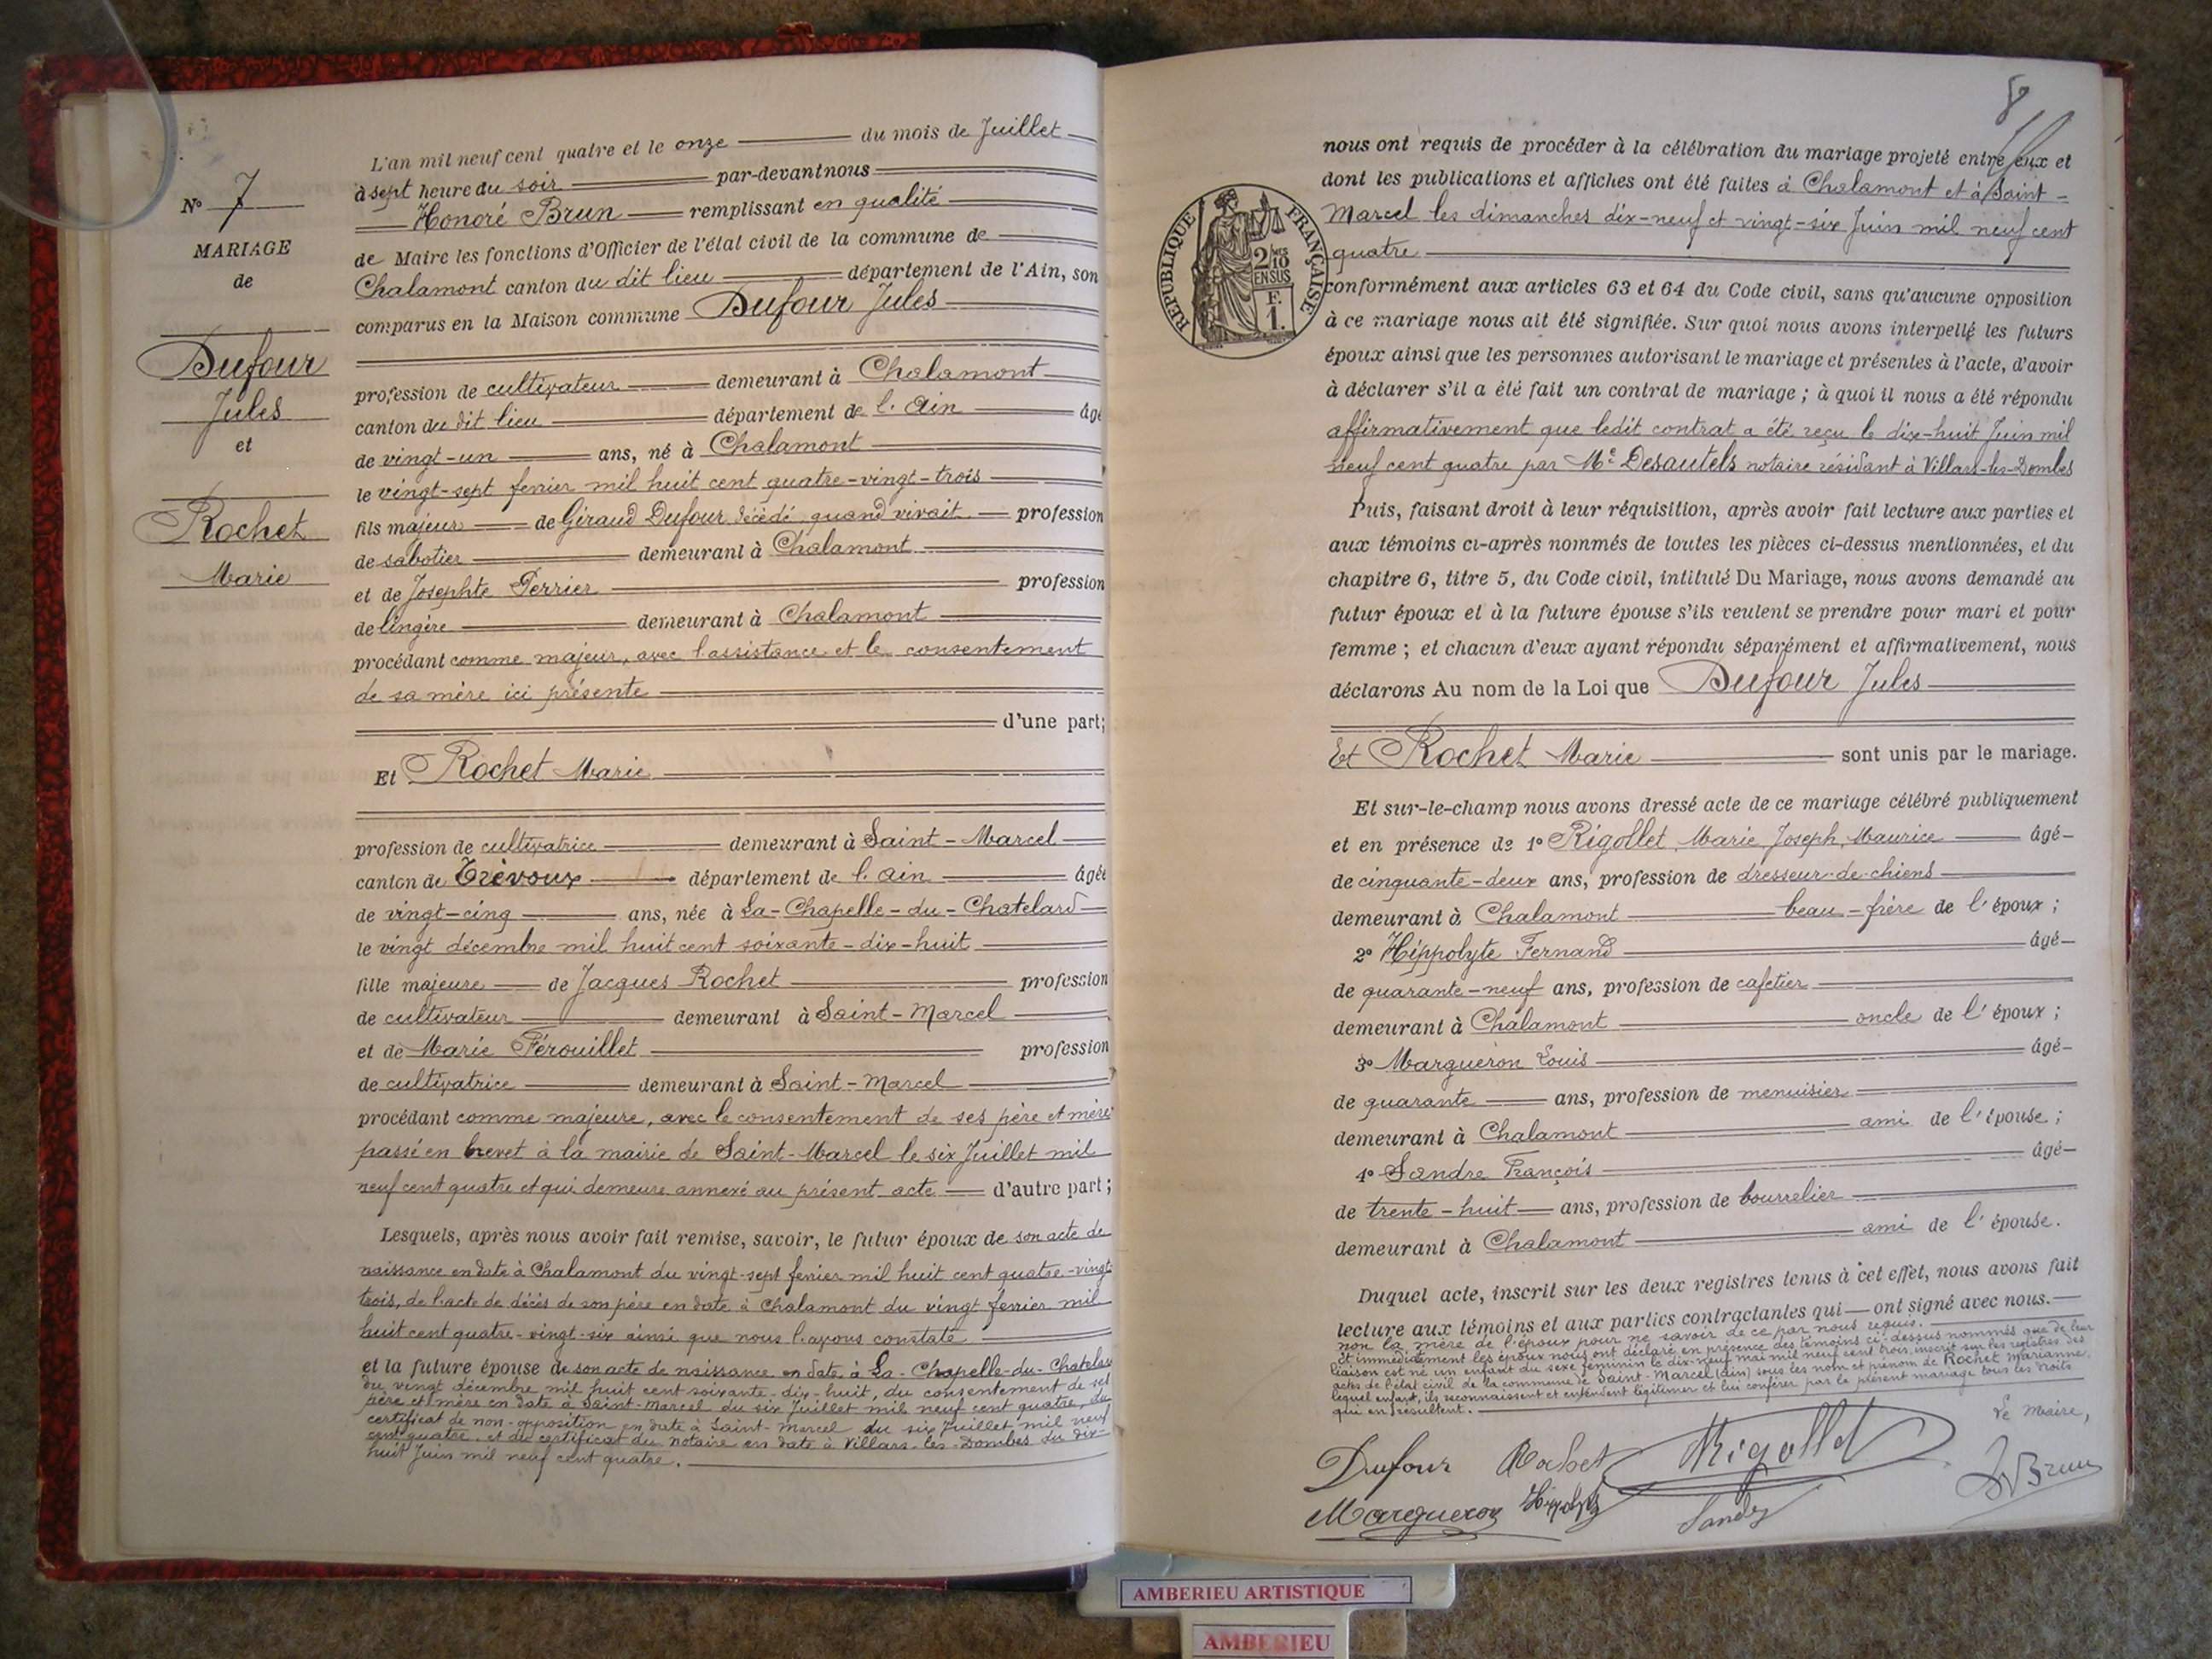 N° 7
MARIAGE
de
Dufour
Jules
et
Rochet
Marie
L'an mil neuf cent quatre et le onze du mois de Juillet
à sept heure du soir par-devant nous
Honoré Brun remplissant en qualité
de Maire les fonctions d'Officier de l'état civil de la commune de
Chalamont canton du dit lieu département de l'Ain, son
comparus en la Maison commune Dufour Jules
profession de cultivateur demeurant à Chalamont
canton du dit lieu département de l'Ain âgé
de vingt-un ans, né à Chalamont
le vingt-sept fevrier mil huit cent quatre-vingt-trois
fils majeur de Giraud Dufour décédé, quand vivait profession
de sabotier demeurant à Chalamont
et de Josephte Perrier profession
de lingère demeurant à Chalamont
procédant comme majeur, avec l'assistance et le consentement
de sa mère ici présente
d'une part;
Et Rochet Marie
profession de cultivatrice demeurant à Saint-Marcel
canton de Trévoux département de l'Ain âgée
de vingt-cinq ans, née à La-Chapelle-du-Chatelard
le vingt décembre mil huit cent soixante-dix-huit
fille majeure de Jacques Rochet profession
de cultivateur demeurant à Saint-Marcel
et de Marie Férouillet profession
de cultivatrice demeurant à Saint-Marcel
procédant comme majeure, avec le consentement de ses père et mère
passé en brevet à la mairie de Saint-Marcel le six Juillet mil
neuf cent quatre et qui demeure annexé au présent acte d'autre part;
Lesquels, après nous avoir fait remise, savoir, le futur époux de son acte de
naissance en date à Chalamont du vingt-sept fevrier mil huit cent quatre-vingt-
trois, de l'acte de décès de son père en date à Chalamont du vingt fevrier mil
huit cent quatre-vingt-six ainsi que nous l'avons constaté
et la future épouse de son acte de naissance en date à La-Chapelle-du-Chatelard
du vingt décembre mil huit cent soixante-dix-huit, du consentement de ses
père et mère en date à Saint-Marcel du six Juillet mil neuf cent quatre, du
certificat de non-opposition en date à Saint-Marcel du six Juillet mil neuf
cent quatre, et du certificat du notaire en date à Villars-les-Dombes du dix-
huit Juin mil neuf cent quatre.
8
RÉPUBLIQUE FRANÇAISE
2/10
EN SUS
F.
1.
nous ont requis de procéder à la célébration du mariage projeté entre eux et
dont les publications et affiches ont été faites à Chalamont et à Saint-
Marcel les dimanches dix-neuf et vingt-six Juin mil neuf cent
quatre
conformément aux articles 63 et 64 du Code civil, sans qu'aucune opposition
à ce mariage nous ait été signifiée. Sur quoi nous avons interpellé les futurs
époux ainsi que les personnes autorisant le mariage et présentes à l'acte, d'avoir
à déclarer s'il a été fait un contrat de mariage; à quoi il nous a été répondu
affirmativement que ledit contrat a été reçu le dix-huit Juin mil
neuf cent quatre par Me Desautels notaire résidant à Villars-les-Dombes
Puis, faisant droit à leur réquisition, après avoir fait lecture aux parties et
aux témoins ci-après nommés de toutes les pièces ci-dessus mentionnées, et du
chapitre 6, titre 5, du Code civil, intitulé Du Mariage, nous avons demandé au
futur époux et à la future épouse s'ils veulent se prendre pour mari et pour
femme; et chacun d'eux ayant répondu séparément et affirmativement, nous
déclarons Au nom de la Loi que Dufour Jules
Et Rochet Marie sont unis par le mariage.
Et sur-le-champ nous avons dressé acte de ce mariage célébré publiquement
et en présence de 1° Rigollet, Marie, Joseph, Maurice âgé
de cinquante-deux ans, profession de dresseur-de-chiens
demeurant à Chalamont beau-frère de l'époux;
2° Hippolyte Fernand âgé
de quarante-neuf ans, profession de cafetier
demeurant à Chalamont oncle de l'époux;
3° Margueron Louis âgé
de quarante ans, profession de menuisier
demeurant à Chalamont ami de l'épouse;
4° Sandre François âgé
de trente-huit ans, profession de bourrelier
demeurant à Chalamont ami de l'épouse.
Duquel acte, inscrit sur les deux registres tenus à cet effet, nous avons fait
lecture aux témoins et aux parties contractantes qui ont signé avec nous.
non la mère de l'époux pour ne savoir de ce par nous requis.
Et immédiatement les époux nous ont déclaré en présence des témoins ci-dessus nommés que de leur
liaison est né un enfant du sexe féminin le dix-neuf mai mil neuf cent trois, inscrit sur les registres des
actes de l'état civil de la commune de Saint-Marcel (Ain) sous les nom et prénom de Rochet Marianne,
lequel enfant, ils reconnaissent et entendent légitimer et lui conférer par le présent mariage tous les droits
qui en résultent.
Le Maire,
Dufour Rochet Rigollet
H Brun
Margueron Hippolyte Sandre
AMBERIEU ARTISTIQUE
AMBERIEU